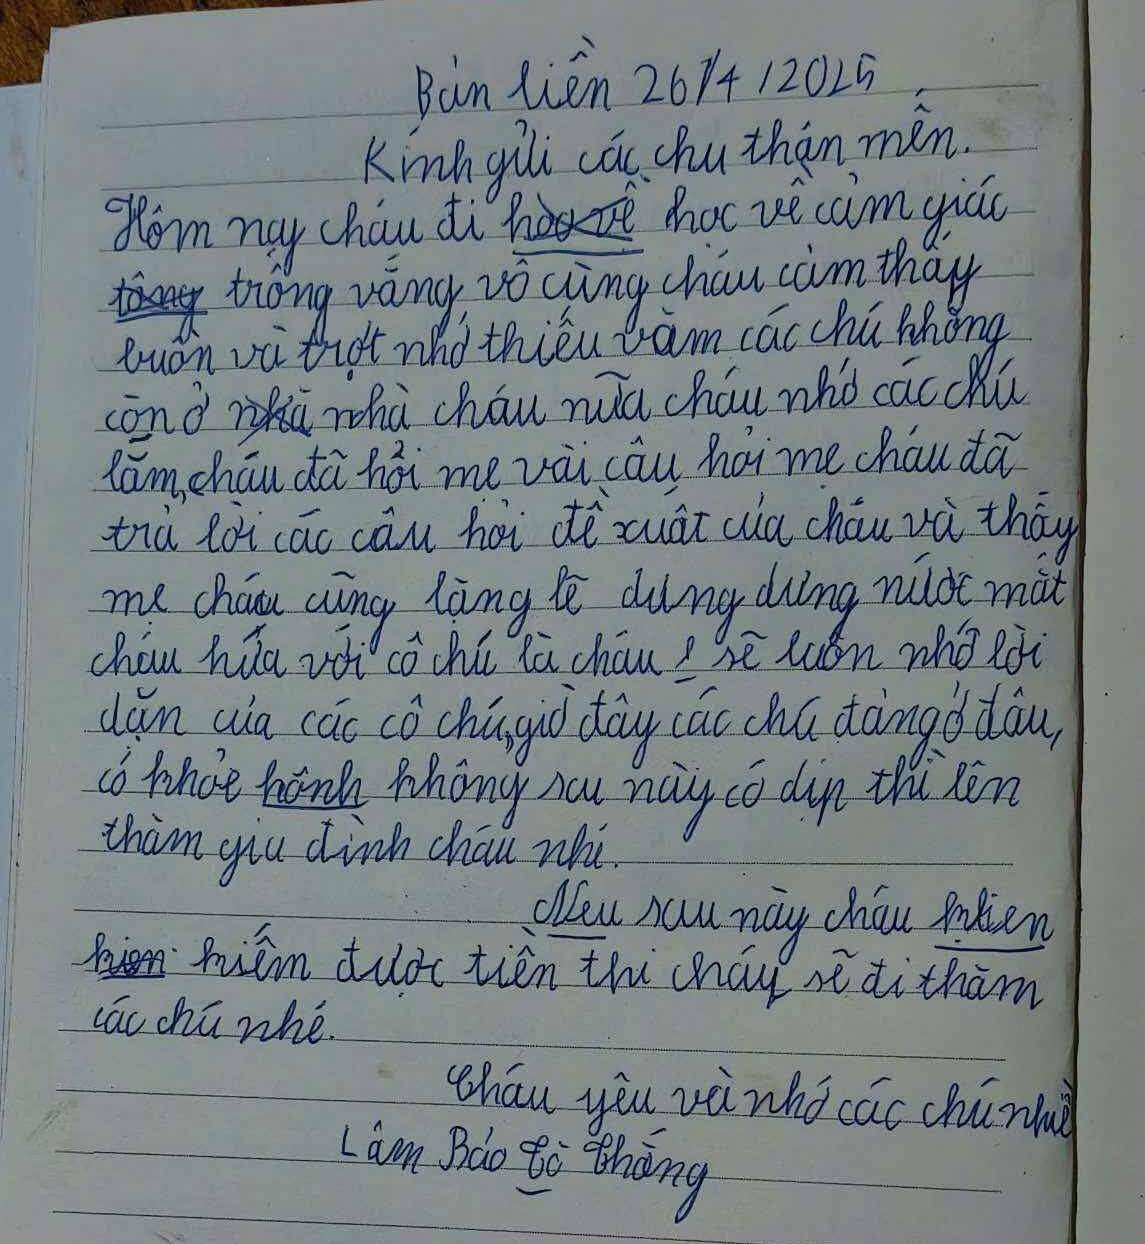 Bản liền 26/4/2025
Kính gửi các chu thân mến.
Hôm nay cháu đi học về cảm giác
trống vắng vô cùng cháu cảm thấy
buồn và trợt nhớ thiếu vàm các chú không
còn ở nhà cháu nữa cháu nhớ các chú
lắm, cháu đã hỏi mẹ vài câu hỏi mẹ cháu đã
trả lời các câu hỏi đề xuất của cháu và thấy
mẹ cháu cũng lặng lẽ dưng dưng nước mắt
cháu hứa với cô chú là cháu sẽ luôn nhớ lời
dặn của các cô chú, giờ đây các chú đang ở đâu,
có khỏe không sau này có dịp thì lên
thăm gia đình cháu nhé.
Nếu sau này cháu
kiếm được tiền thi cháu sẽ đi thăm
các chú nhé.
Cháu yêu và nhớ các chú nhiề
Lâm Bảo Cò Thắng